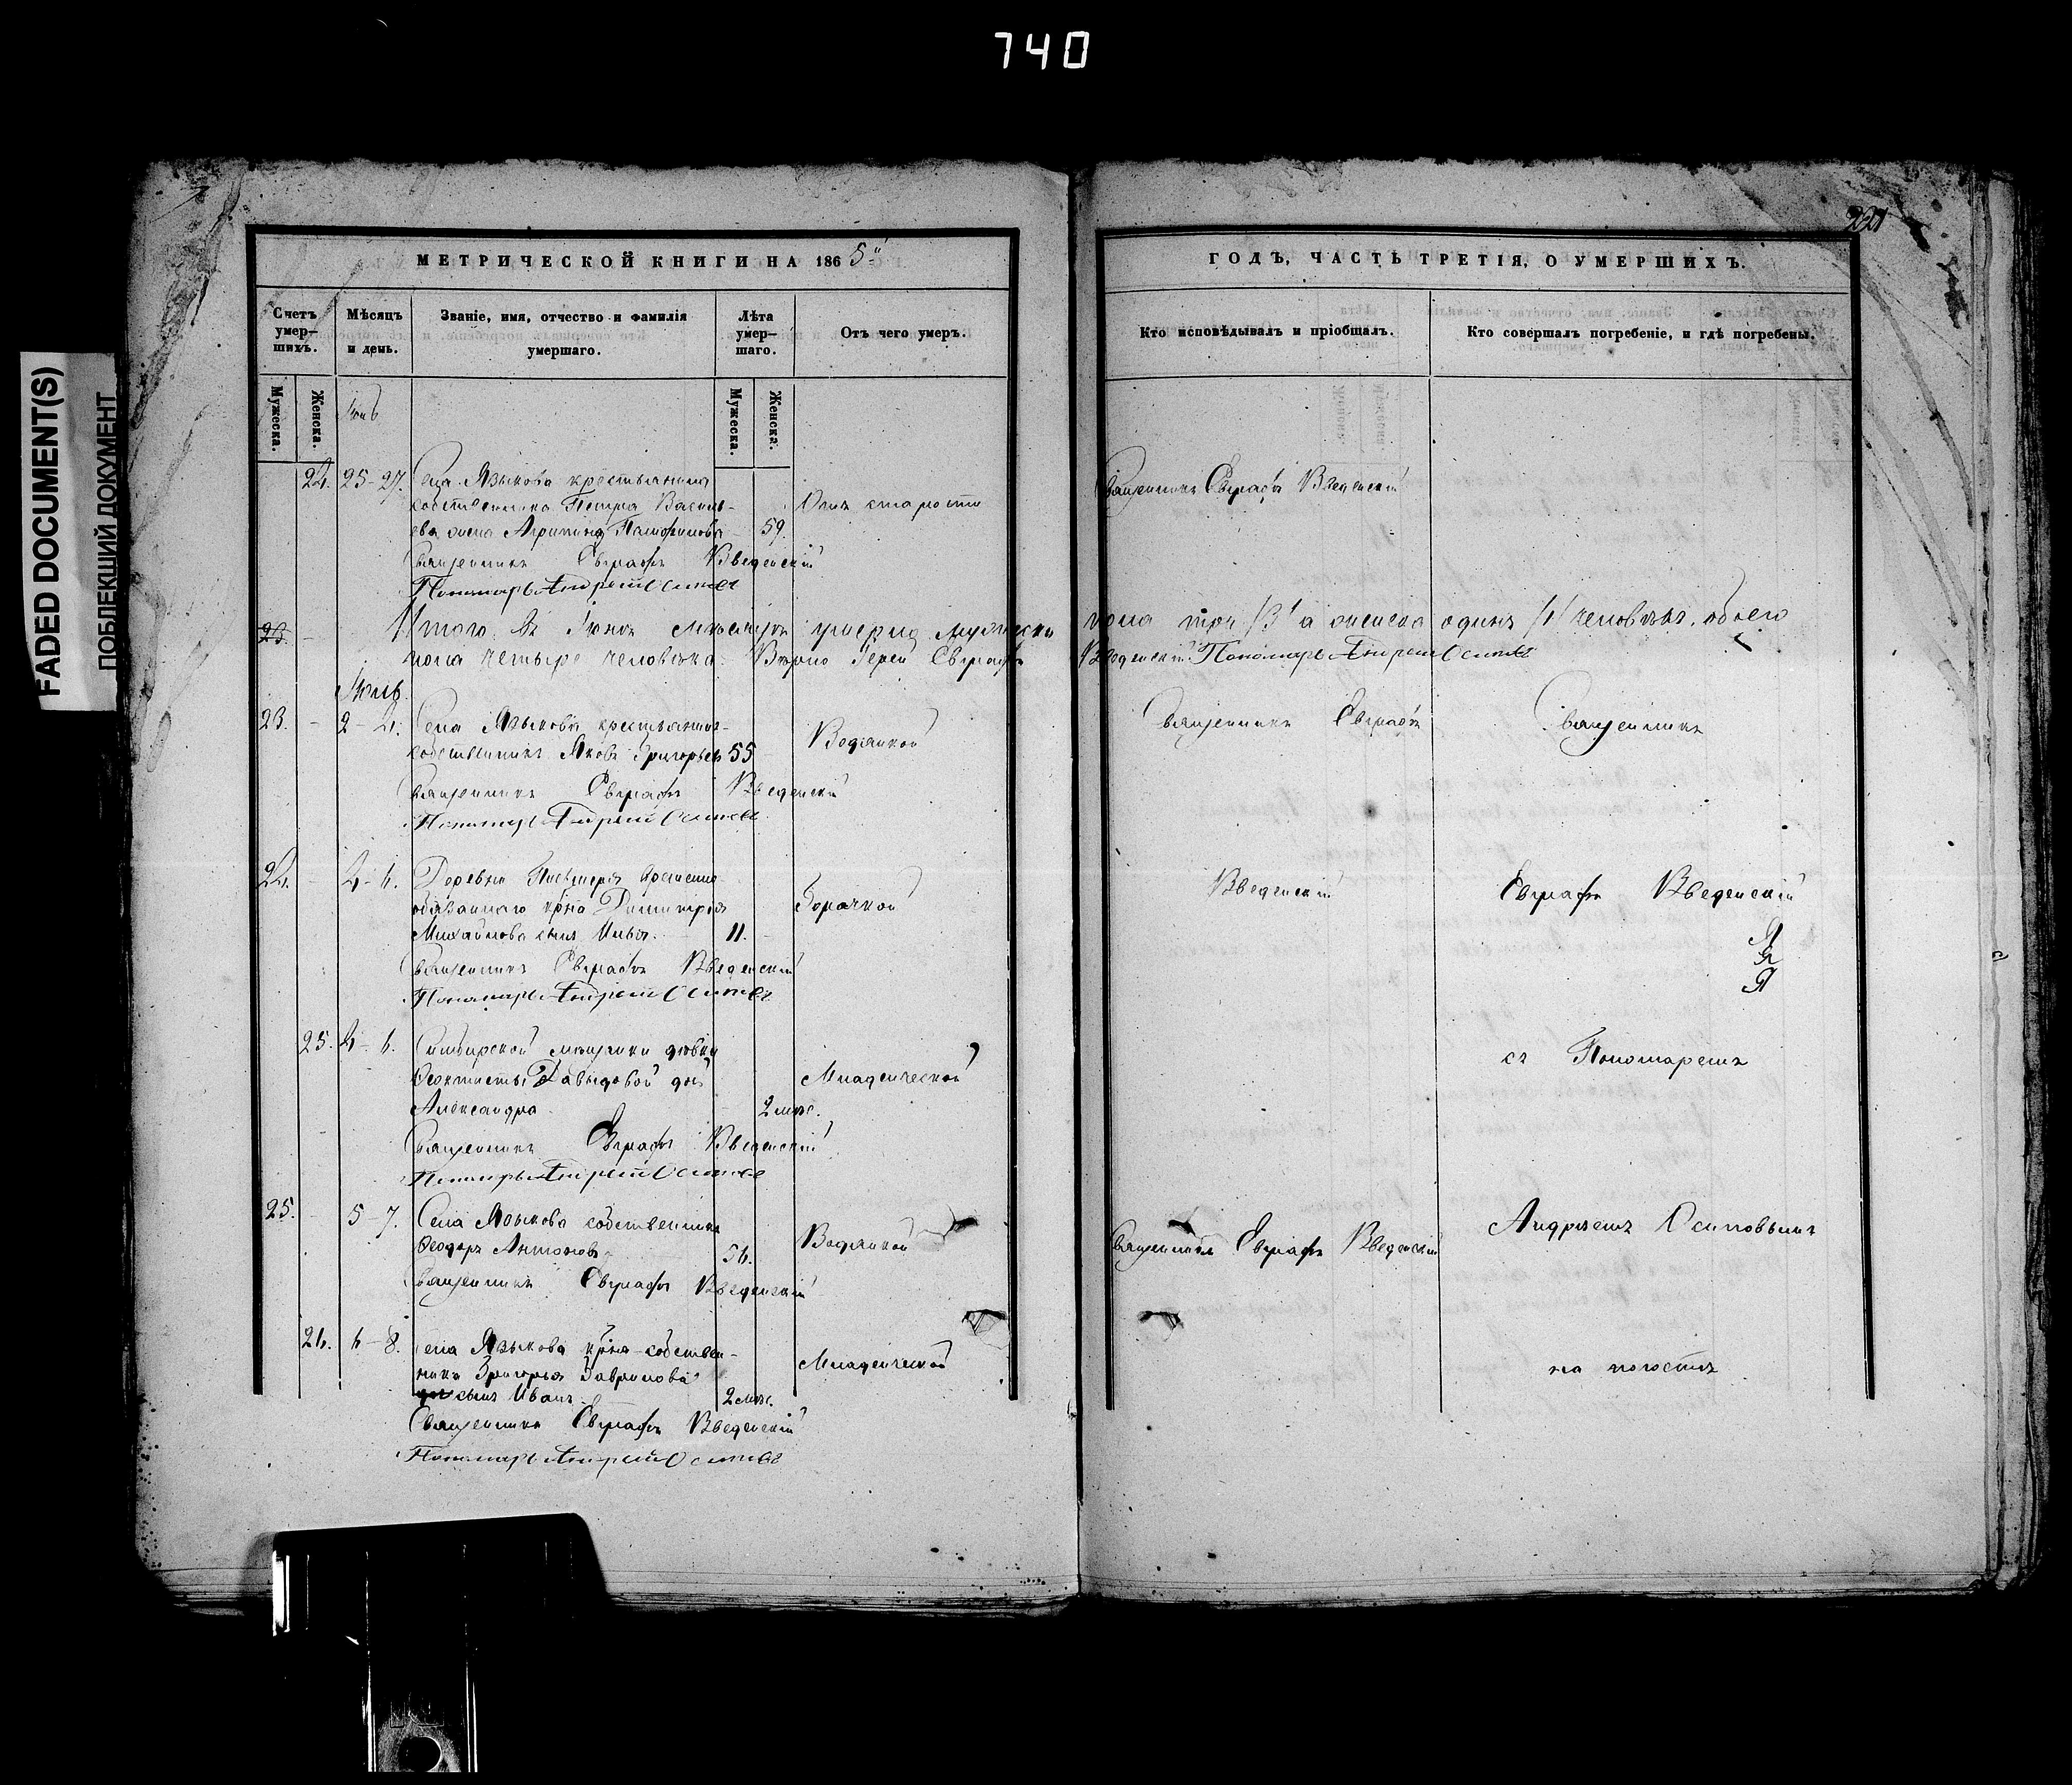 740
FADED DOCUMENT(S)
ПОБЛЕКШИЙ ДОКУМЕНТ
221
МЕТРИЧЕСКОЙ КНИГИ НА 1865
ГОДЪ, ЧАСТЬ ТРЕТІЯ, О УМЕРШИХЪ.
Счетъ умер-шихъ.
Мѣсяцъ и день.
Званіе, имя, отчество и фамилія умершаго.
Лѣта умер-шаго.
Отъ чего умеръ.
Кто исповѣдывалъ и пріобщалъ.
Кто совершалъ погребеніе, и гдѣ погребены.
Мужеска.
Женска.
Мужеска.
Женска.
24. 25-27. Села Языкова крестьянина
собственника Петра Василь-
ева жена Агрипина
59.
Отъ старости
Священникъ Евграфъ Введенскій
Священникъ Евграфъ Введенскій
Пономарь Андрей Осиповъ
23. Итого въ Іюнѣ мѣсяцѣ умерло мужеска пола три /3/ а женска одинъ /1/ человѣкъ. обоего
пола четыре человѣка. Вѣрно Іерей Евграфъ Введенскій Пономарь Андрей Осиповъ
Іюль
23. 2-4. Села Языкова крестьянинъ-
собственникъ Яковъ Григорьевъ 55
Водянкой
Священникъ Евграфъ
Священникъ
Священникъ Евграфъ Введенскій
Пономарь Андрей Осиповъ
24. 4-6. Деревни временно
обязаннаго кр-на Димитрія
Михайлова сынъ Илья. 11.
Горячкой
Введенскій
Евграфъ Введенскій
Священникъ Евграфъ Введенскій
Пономарь Андрей Осиповъ
25. 4-6. Симбирской мѣщанки дѣвки
Ѳеоктисты Давыдовой дочь
Александра 2 мѣс.
Младенческой
съ Пономаремъ
Священникъ Евграфъ Введенскій
Пономарь Андрей Осиповъ
25. 5-7. Села Языкова собственникъ
Ѳеодоръ Антоновъ 56.
Водянкой
Священникъ Евграфъ Введенскій
Андреемъ Осиповымъ
Священникъ Евграфъ Введенскій
26. 6-8. Села Языкова кр-на-собствен-
ника Григорья Гаврилова
сынъ Иванъ 2 мѣс.
Младенческой
на погостѣ
Священникъ Евграфъ Введенскій
Пономарь Андрей Осиповъ